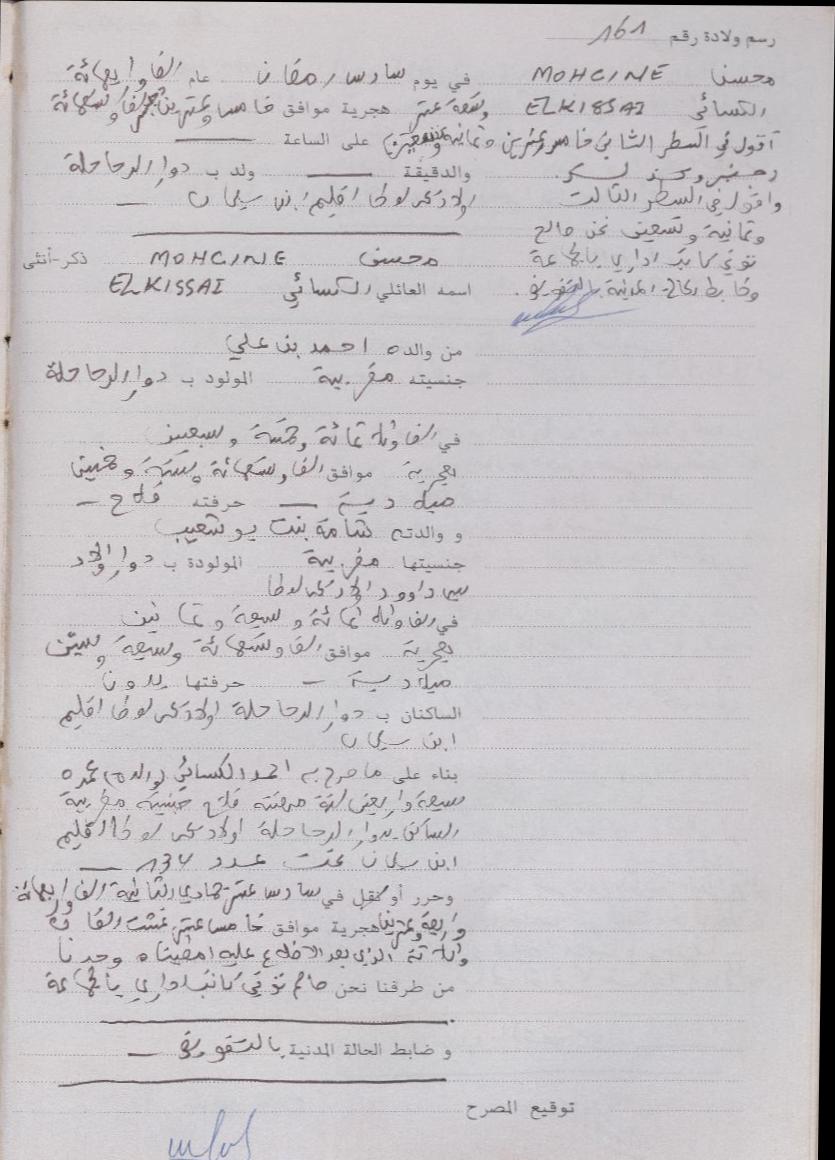 رسم ولادة رقم 161
محسن MOHCINE
الكسائي ELKISSAI
أقول في السطر الثاني خامس وعشرين
دجنبر
وأقول في السطر الثالث
وثمانية وتسعين نحن صالح
توفيق كاتب إداري بالجماعة
وضابط الحالة المدنية بالتفويض
في يوم سادس رمضان عام ألف وأربعمائة
وتسعة عشر هجرية موافق خامس وعشرين ألف وتسعمائة
وثمانية وتسعين على الساعة
والدقيقة — ولد ب دوار الرحاحلة
أولاد يحيى لوطا إقليم ابن سليمان —
محسن MOHCINE ذكر-أنثى
اسمه العائلي الكسائي ELKISSAI
من والده احمد بن علي
جنسيته مغربية المولود ب دوار الرحاحلة
في ألف وثلاثمائة وخمسة وسبعين
هجرية موافق ألف وتسعمائة وستة وخمسين
ميلادية — حرفته فلاح —
و والدته شامة بنت بوشعيب
جنسيتها مغربية المولودة ب دوار أولاد
سي داوود أولاد يحيى لوطا
في ألف وثلاثمائة وسبعة وثمانين
هجرية موافق ألف وتسعمائة وسبعة وستين
ميلادية — حرفتها بدون
الساكنان ب دوار الرحاحلة أولاد يحيى لوطا إقليم
ابن سليمان
بناء على ما صرح به احمد الكسائي (والده) عمره
سبعة وأربعين سنة مهنته فلاح جنسيته مغربية
الساكن بدوار الرحاحلة أولاد يحيى لوطا إقليم
ابن سليمان تحت عدد 134 —
وحرر أو نقل في سادس عشر جمادى الثانية ألف وأربعمائة
وأربعة وعشرين هجرية موافق خامس عشر غشت ألفان
وثلاثة الذي بعد الاطلاع عليه أمضيناه وحدنا
من طرفنا نحن صالح توفيق كاتب إداري بالجماعة
و ضابط الحالة المدنية بالتفويض —
توقيع المصرح